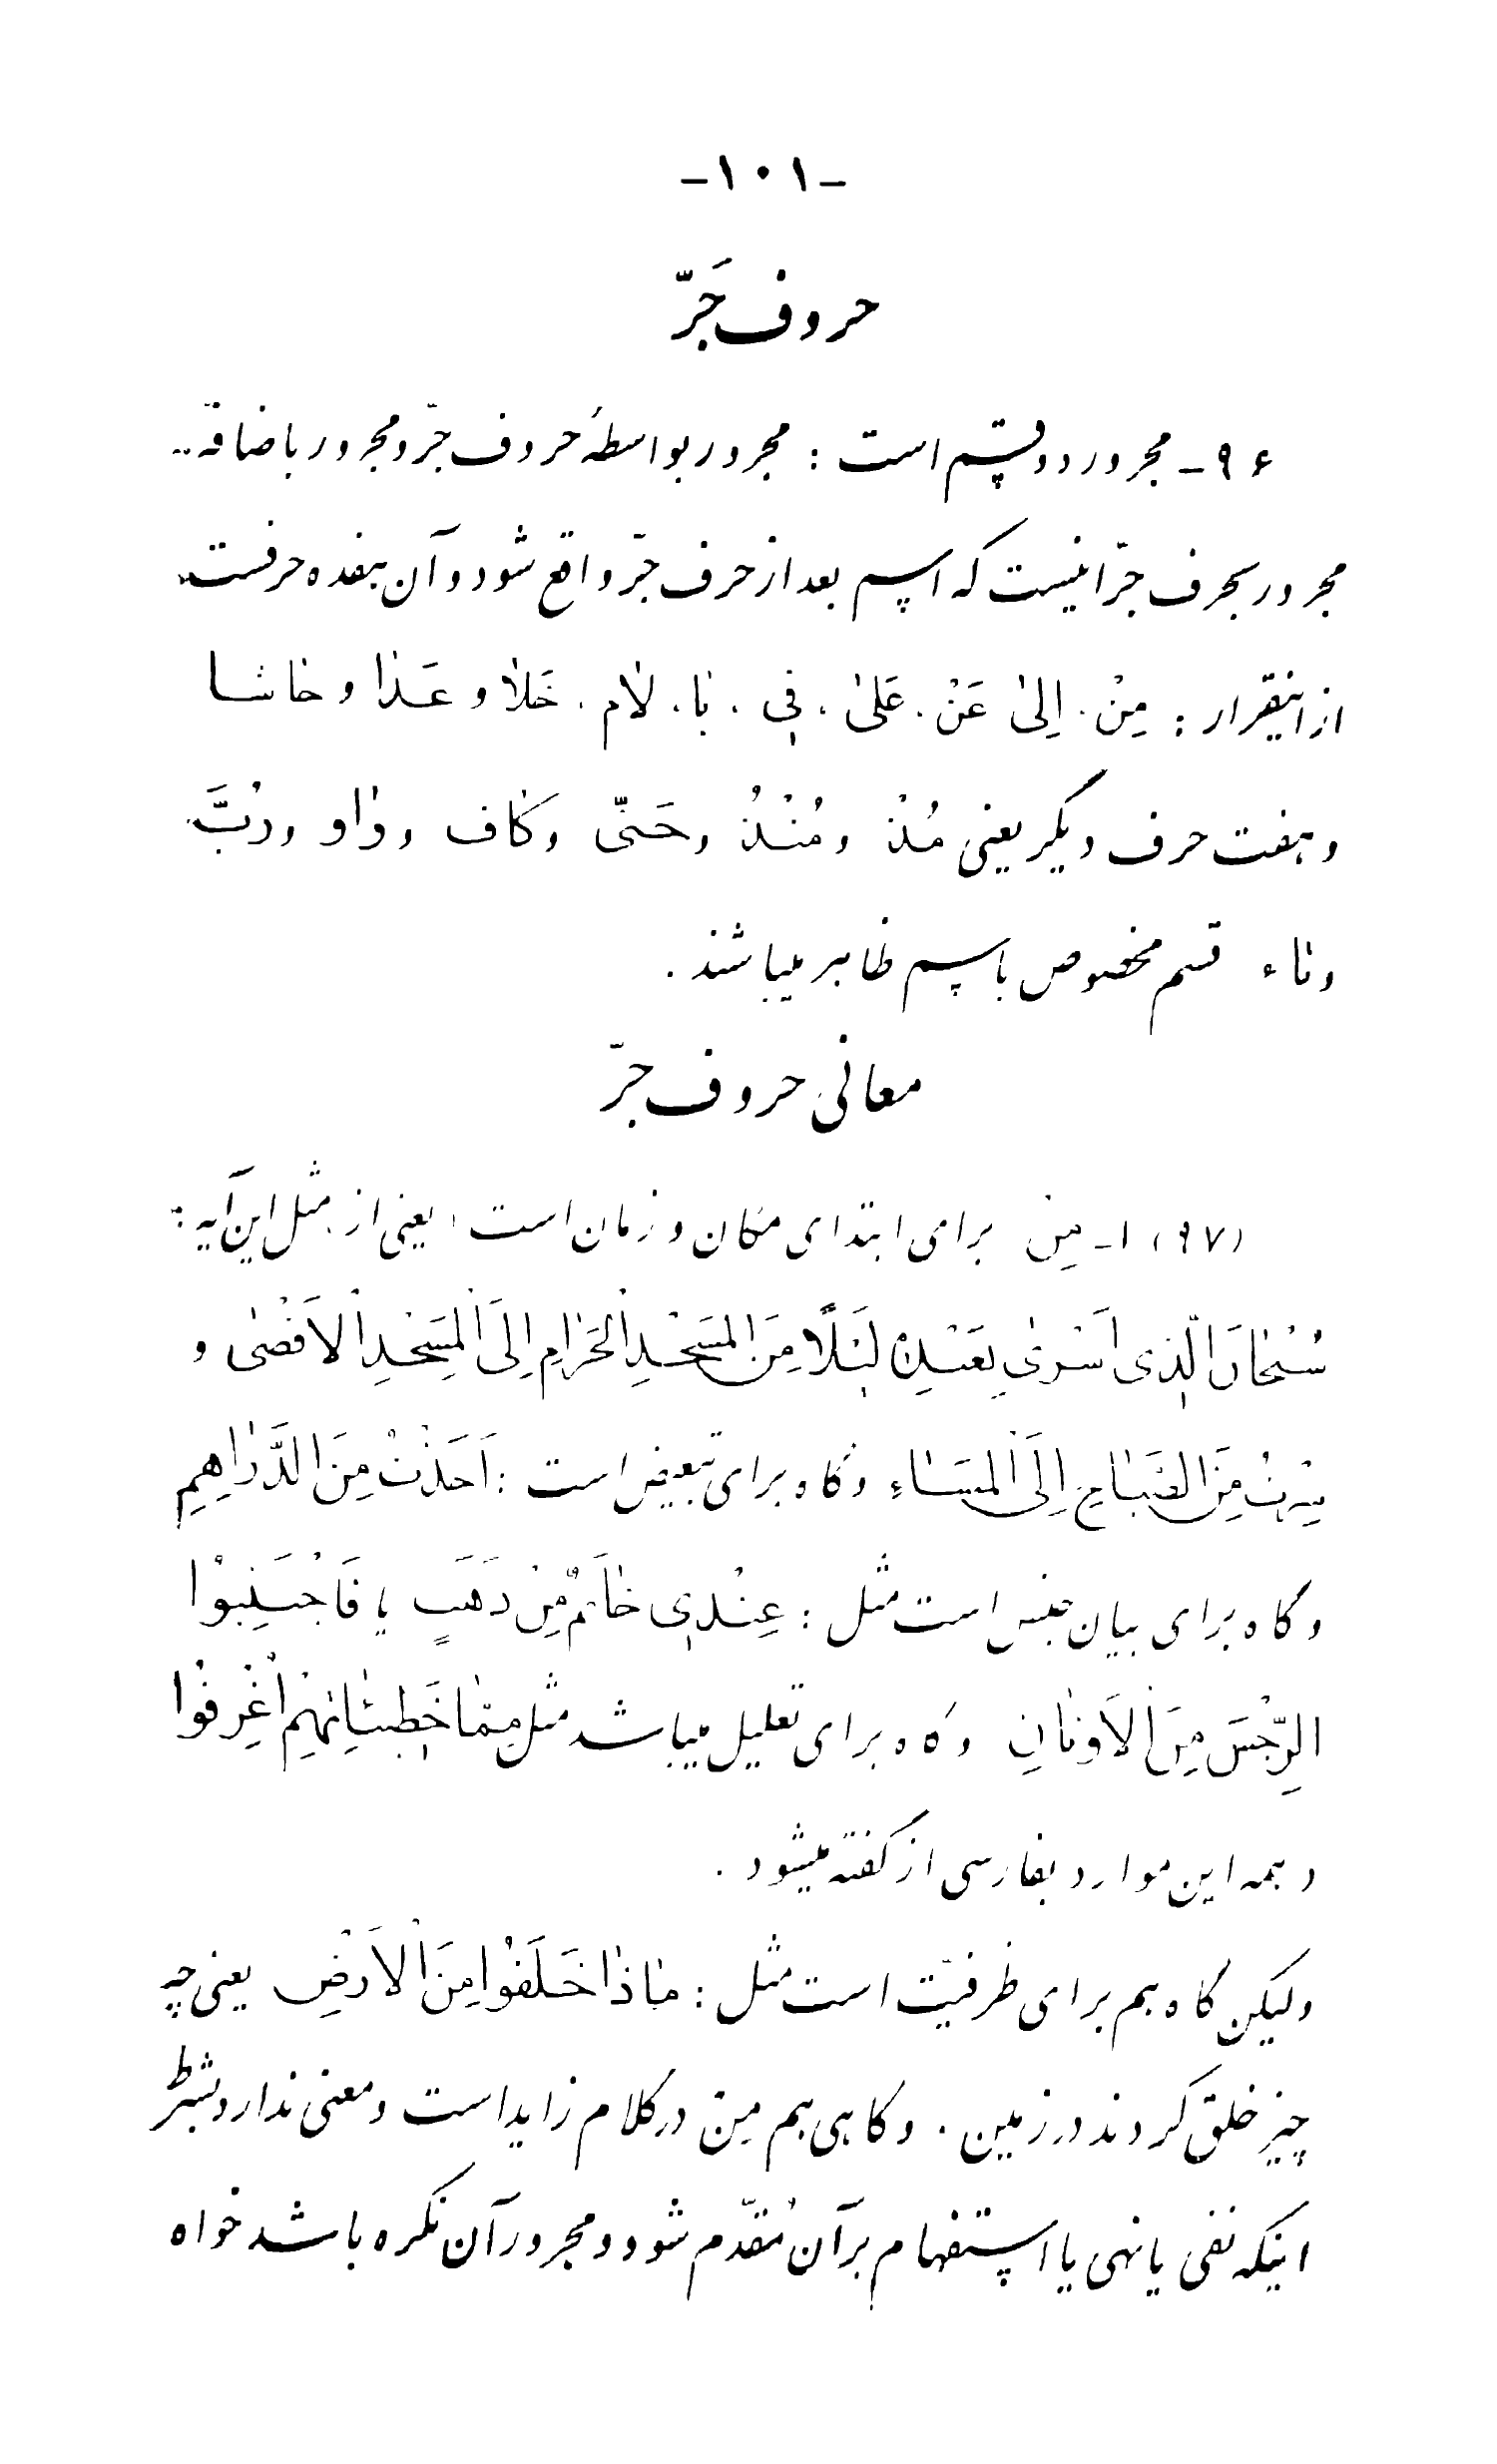 -۱۰۱-
حروف جَرّ
۹۶- مجرور دو قسم است : مجرور بواسطهٔ حروف جرّ و مجرور باضافه ..
مجرور بحرف جرّ اینست که اسم بعد از حرف جرّ واقع شود و آن هفده حرفست
از اینقرار : مِنْ . اِلیٰ عَنْ . عَلیٰ . فی . بٰا . لٰام . خَلاٰ و عَدٰا و حٰاشا
و هفت حرف دیگر یعنی مُذْ و مُنْذُ و حَتّی و کٰاف و وٰاو و رُبَّ
و تٰاء قسم مخصوص باسم ظاهر میباشند .
معانی حروف جرّ
(۹۷) ۱- مِن برای ابتدای مکان و زمان است ، یعنی از . مثل این آیه :
سُبْحٰانَ الَّذی اَسْریٰ بِعَبْدِهِ لَیْلًا مِنَ الْمَسْجِدِ الْحَرٰامِ اِلَی الْمَسْجِدِ الْاَقْصٰی و
سِرْتُ مِنَ الصَّبٰاحِ اِلَی الْمَسٰاءِ و گاه برای تبعیض است : اَخَذْتُ مِنَ الدَّرٰاهِمِ
و گاه برای بیان جنس است مثل : عِنْدی خٰاتَمٌ مِنْ ذَهَبٍ یا فَاجْتَنِبُوْا
الرِّجْسَ مِنَ الْاَوْثٰانِ و گاه برای تعلیل میباشد مثل مِمّٰا خَطیئٰاتِهِمْ اُغْرِقُوْا
و همه این موارد بفارسی از گفته میشود .
ولیکن گاه هم برای ظرفیّت است مثل : مٰاذٰا خَلَقُوْا مِنَ الْاَرْضِ یعنی چه
چیز خلق کردند در زمین . و گاهی هم مِن در کلام زاید است و معنی ندارد بشرط
اینکه نفی یا نهی یا استفهام بر آن مُقدّم شود و مجرور آن نکره باشد خواه